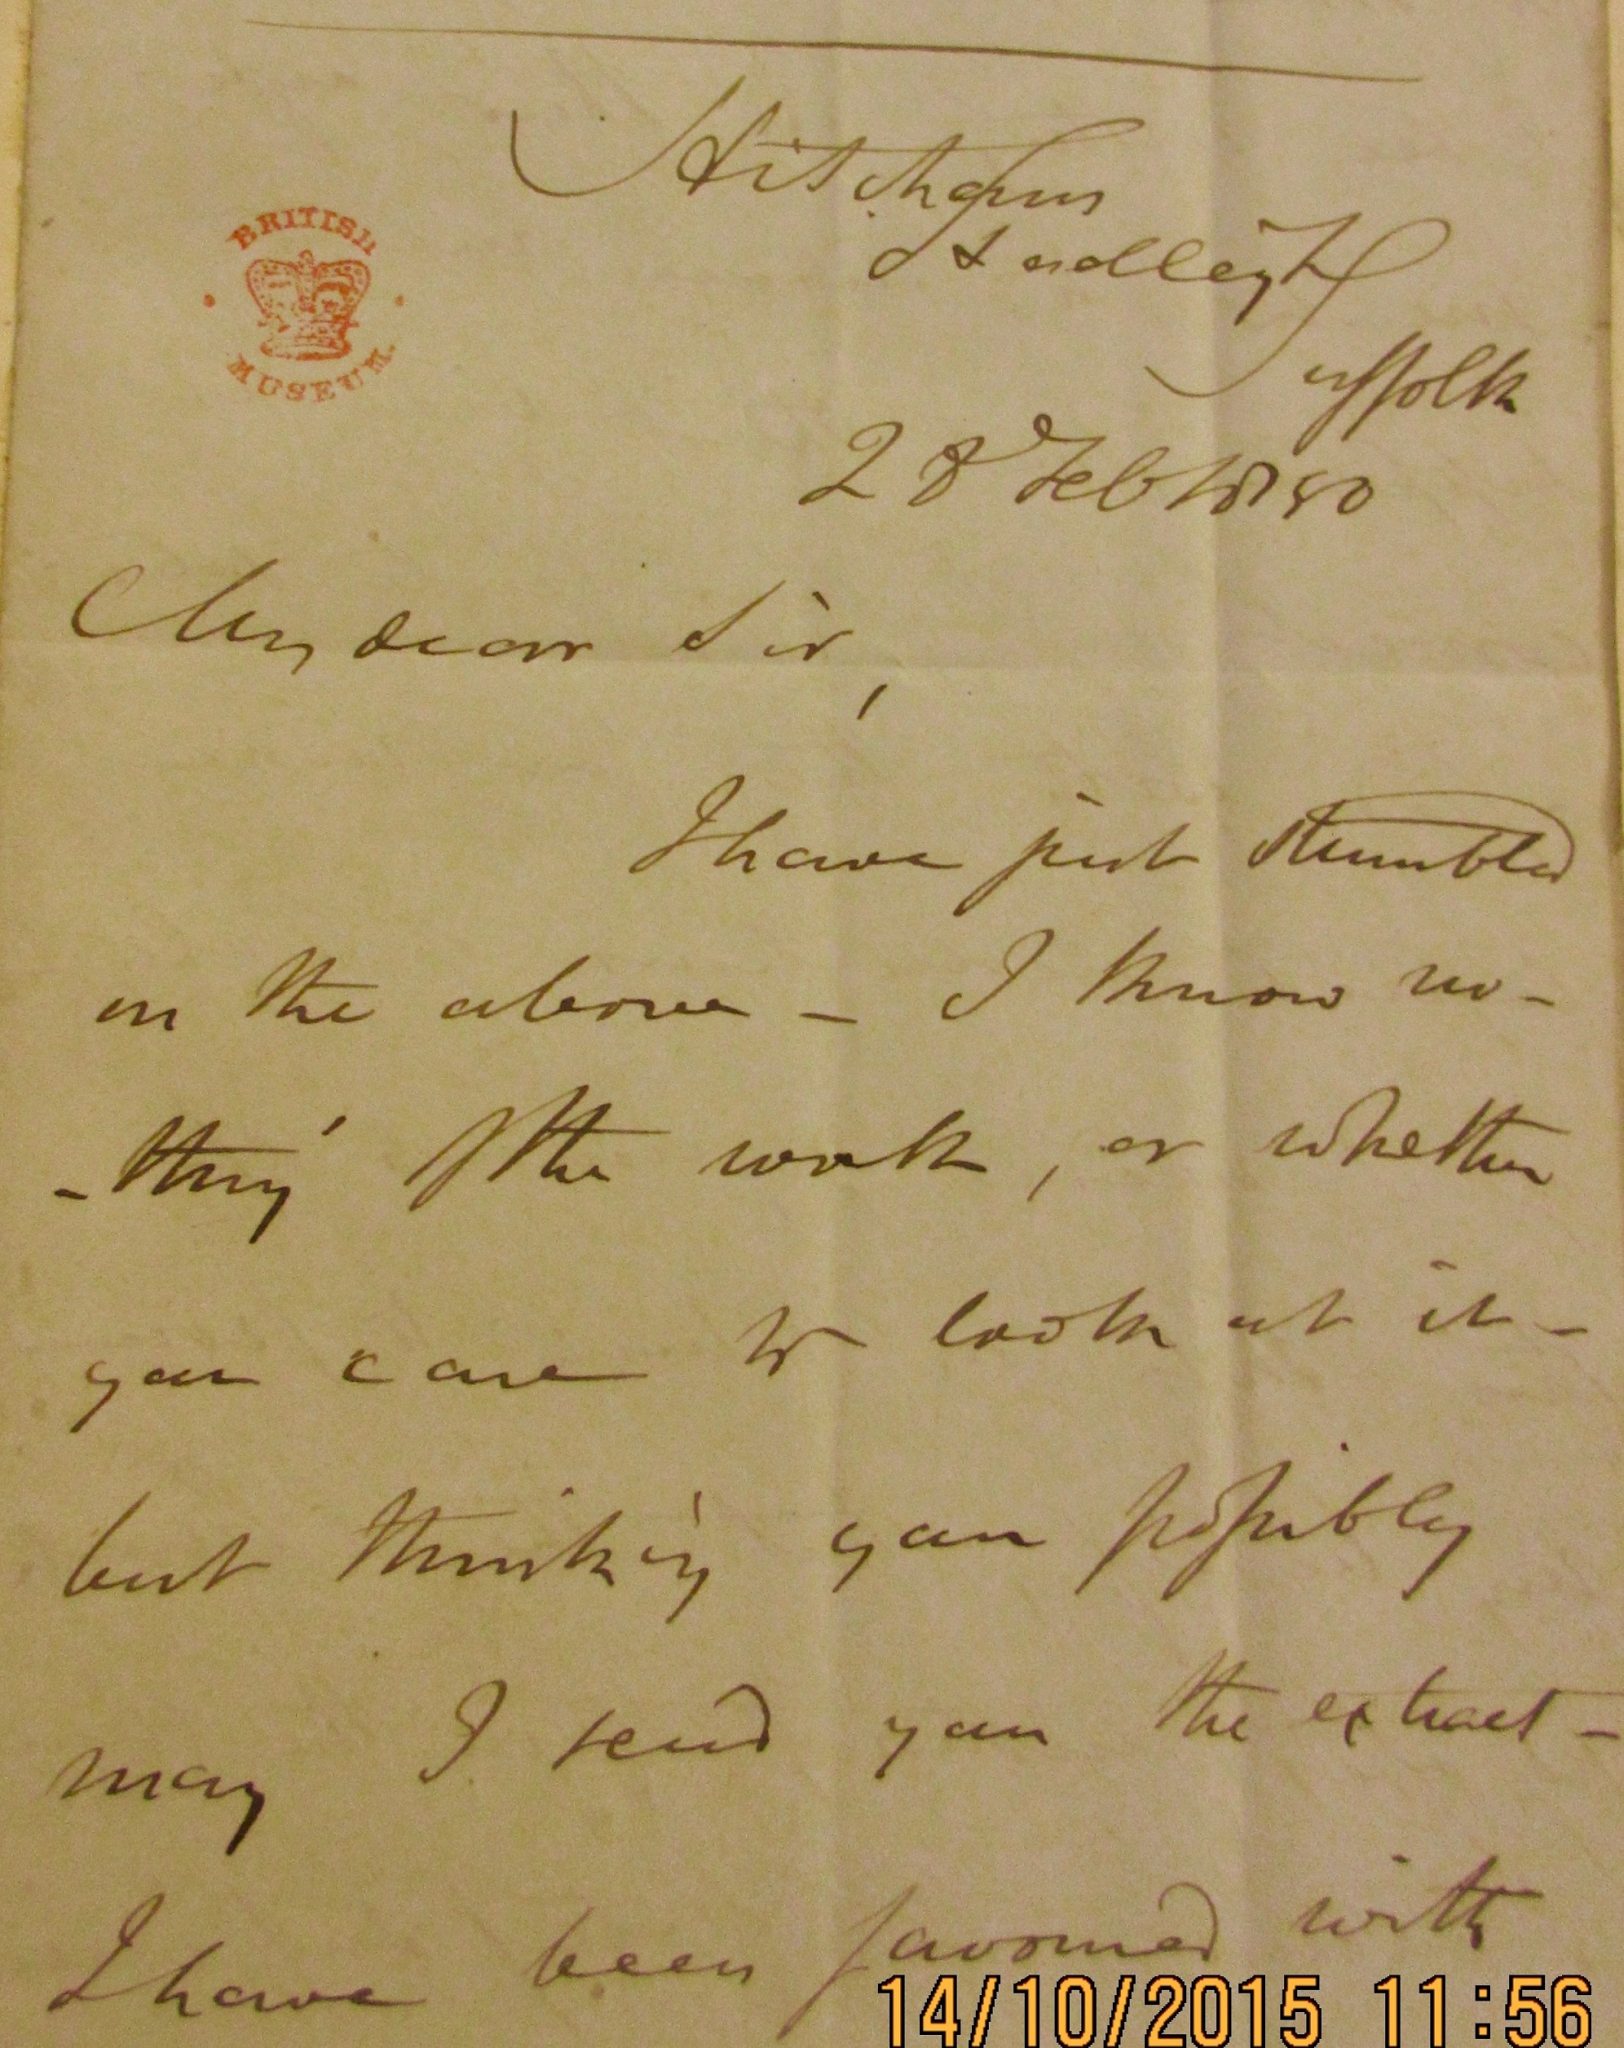 Hitcham
Hadleigh
Suffolk
BRITISH
MUSEUM
28 Feb 1850
My dear Sir,
I have just stumbled
on the above - I know no-
-thing of the work, or whether
you care to look at it -
but thinking you possibly
may I send you the extract -
I have been favoured with
14/10/2015 11:56